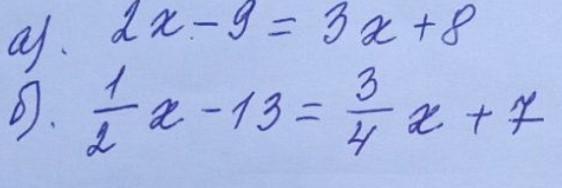 а). 2x - 9 = 3x + 8
б). 1/2 x - 13 = 3/4 x + 7